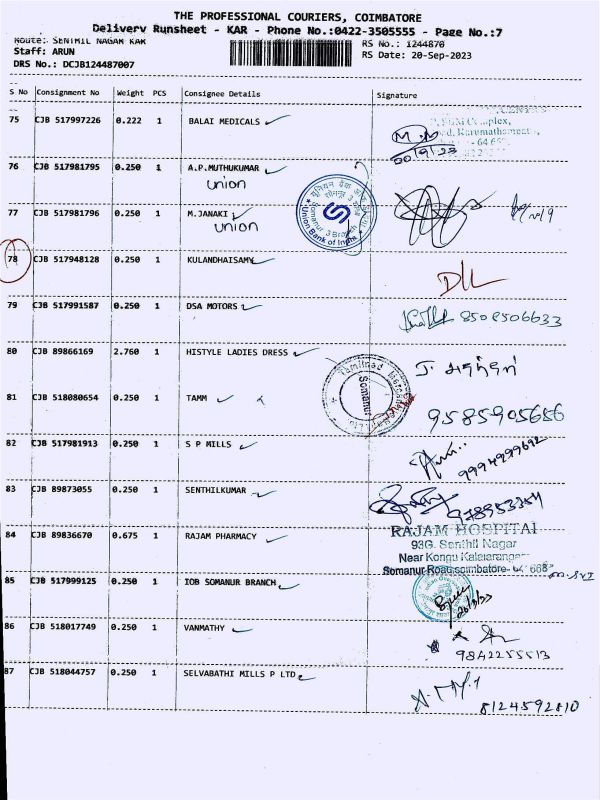 THE PROFESSIONAL COURIERS, COIMBATORE
Delivery Runsheet - KAR - Phone No.:0422-3505555 - Page No.:7
Route: SENTHIL NAGAR KAR
RS No.: 1244870
Staff: ARUN
RS Date: 20-Sep-2023
DRS No.: DCJB124487007
S No Consignment No Weight PCS Consignee Details Signature
75 CJB 517997226 0.222 1 BALAI MEDICALS
M.M
76 CJB 517981795 0.250 1 A.P.MUTHUKUMAR
union
77 CJB 517981796 0.250 1 M.JANAKI
union
Somanur Branch
Union Bank of India
78 CJB 517948128 0.250 1 KULANDHAISAMY
79 CJB 517991587 0.250 1 DSA MOTORS
8508506633
80 CJB 89866169 2.760 1 HISTYLE LADIES DRESS
Tamilnad Mercantile
Somanur
81 CJB 518080654 0.250 1 TAMM
9585905656
82 CJB 517981913 0.250 1 S P MILLS
9994299692
83 CJB 89873055 0.250 1 SENTHILKUMAR
84 CJB 89836670 0.675 1 RAJAM PHARMACY
RAJAM HOSPITAL
93G. Senthil Nagar
Near Kongu
Somanur Road,
85 CJB 517999125 0.250 1 IOB SOMANUR BRANCH
86 CJB 518017749 0.250 1 VANMATHY
9842255513
87 CJB 518044757 0.250 1 SELVABATHI MILLS P LTD
8124592810